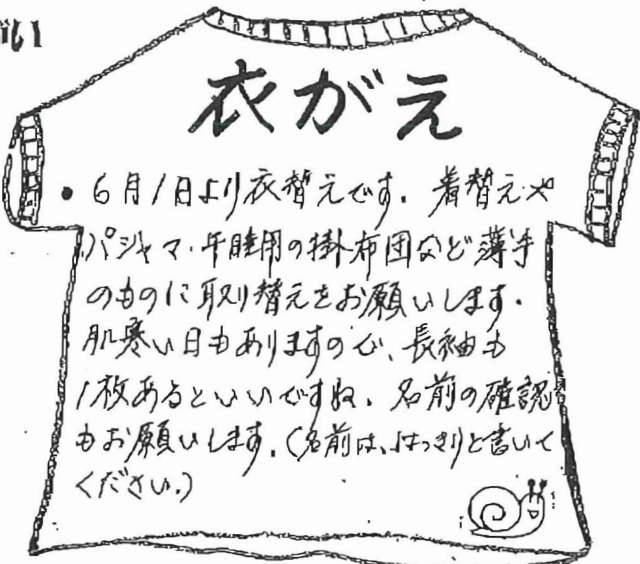 衣がえ
・6月1日より衣替えです。着替えや
パジャマ・午睡用の掛布団など薄手
のものに取り替えをお願いします。
肌寒い日もありますので、長袖も
1枚あるといいですね。名前の確認
もお願いします。(名前は、はっきりと書いて
ください。)